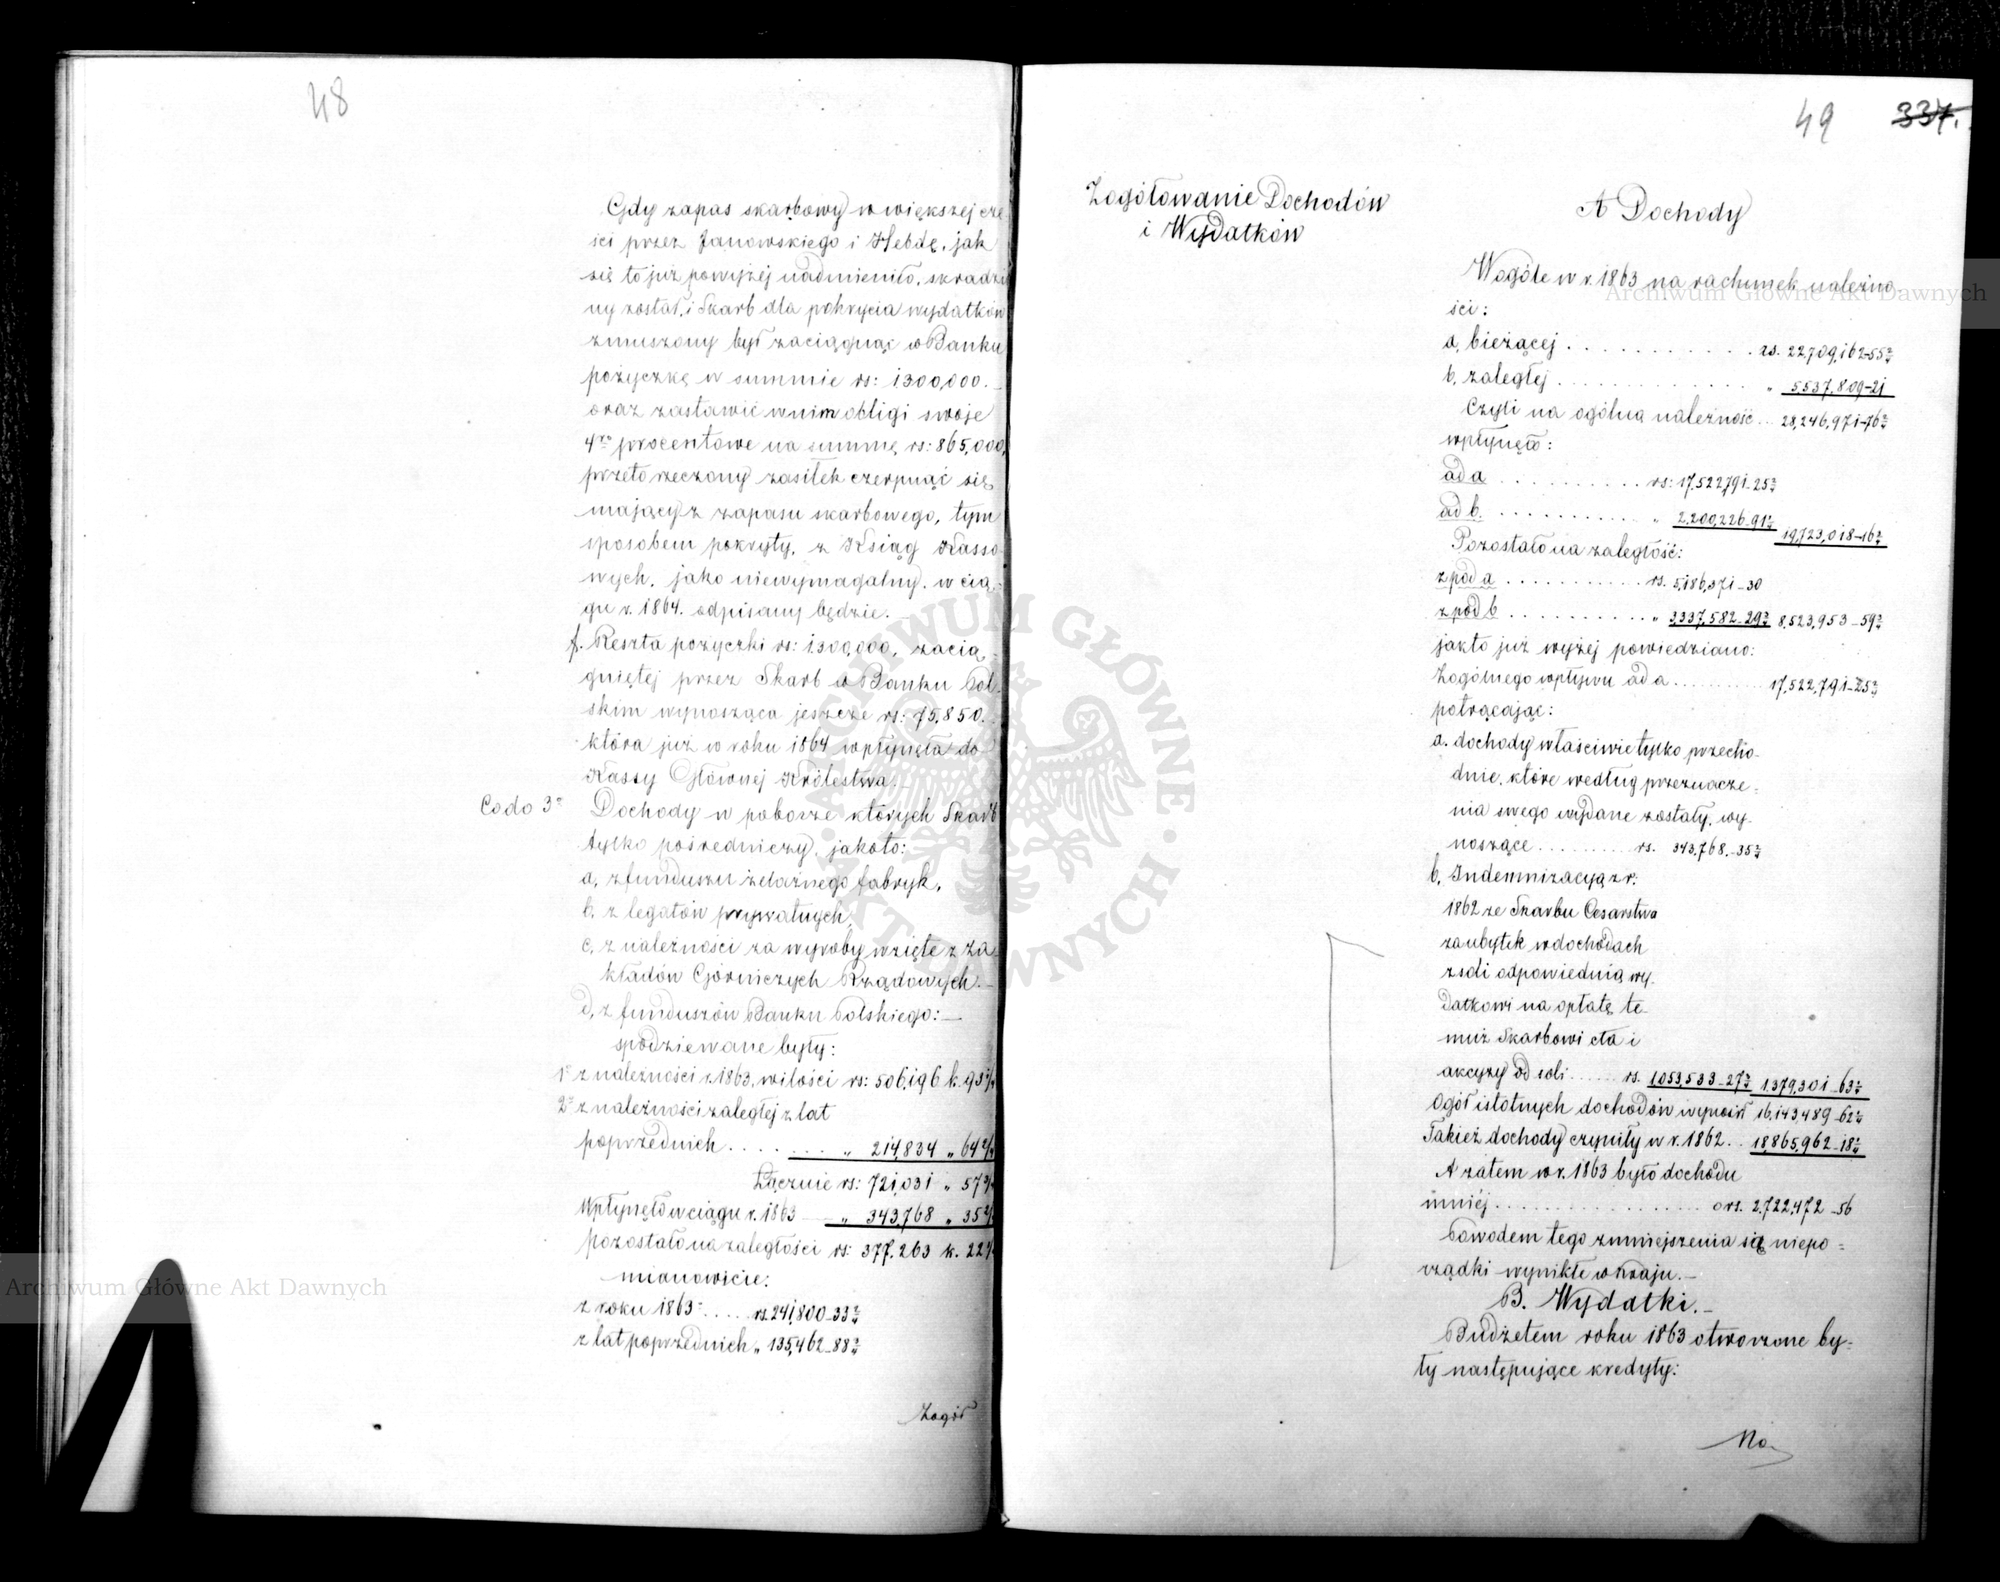 48
Gdy zapas skarbowy w większej czę-
ści przez Janowskiego i Hebdę, jak
się to już powyżej nadmieniło, skradzio
ny został, i Skarb dla pokrycia wydatków
zmuszony był zaciągnąć w Banku
pożyczkę w summie rs: 1300,000.—
oraz zastawić w nim obligi swoje
4ro procentowe na summę rs: 865,000,
przeto rzeczony zasiłek czerpnąć się
mający z zapasu skarbowego, tym
sposobem pokryty, z Ksiąg Kasso-
wych, jako niewymagalny, w cią-
gu r. 1864. odpisany będzie.—
f. Reszta pożyczki rs: 1300,000, zacią-
gniętej przez Skarb w Banku Pol-
skim wynosząca jeszcze rs: 75,850.—
która już w roku 1864 wpłynęła do
Kassy Głównej Królestwa.—
Co do 3o Dochody w poborze których Skarb
tylko pośredniczy, jakoto:
a, z funduszu żelaznego fabryk,
b, z legatów prywatnych,
c, z należności za wyroby wzięte z Za-
kładów Górniczych Rządowych.—
d, z funduszów Banku Polskiego:—
spodziewane były:
1o z należności r. 1863, w ilości rs: 506,196 k. 93 2/4
2o z należności zaległej z lat
poprzednich . . . . . . . „ 214,834 „ 64 2/4
Łącznie rs: 721,031 „ 57 3/4
Wpłynęło w ciągu r. 1863 — „ 343,768 „ 35 2/4
pozostało na zaległości rs: 377,263 k. 22 1/4
mianowicie:
z roku 1863o . . . . rs. 241,800–33 2/4
z lat poprzednich „ 135,462–88 3/4
Zogół
49 337.
Zogółowanie Dochodów
i Wydatków
A Dochody
Wogóle w r. 1863 na rachunek należno
ści:
a, bieżącej . . . . . . . . . . . rs. 22,709,162–55 2/4
b, zaległej . . . . . . . . . . . . „ 5,537,809–21
Czyli na ogólną należność . . 28,246,971–76 2/4
wpłynęło:
ad a . . . . . . . . . . rs: 17,522,791–25 2/4
ad b. . . . . . . . . . . „ 2,200,226–91 1/4 19,723,018–16 3/4
Pozostało na zaległość:
z pod a . . . . . . . . . . rs. 5,186,371–30
z pod b . . . . . . . . . . „ 3,337,582–29 3/4 8,523,953–59 3/4
jakto już wyżej powiedziano:
Zogólnego wpływu ad a . . . . . . . . 17,522,791–25 2/4
potrącając:
a. dochody właściwie tylko przecho-
dnie, które według przeznacze-
nia swego wydane zostały, wy-
noszące . . . . . . . . rs. 343,768.–35 2/4
b, Indemnizacyą z r.
1862 ze Skarbu Cesarstwa
za ubytek w dochodach
z soli odpowiednią wy-
datkowi na opłatę te-
muż Skarbowi cła i
akcyzy od soli . . . . . rs. 1,053,533–27 3/4 1,379,301–63 1/4
Ogół istotnych dochodów wynosił 16,143,489–62 1/4
Takież dochody czyniły w r. 1862 . . 18,865,962–18 1/4
A zatem w r. 1863 było dochodu
mniéj . . . . . . . . . . . . . . o rs. 2,722,472–56
Powodem tego zmniejszenia się niepo-
rządki wynikłe w kraju.—
B. Wydatki.—
Budżetem roku 1863 otworzone by-
ły następujące kredyty:
Na
Archiwum Główne Akt Dawnych
Archiwum Główne Akt Dawnych
ARCHIWUM GŁÓWNE · AKT DAWNYCH ·